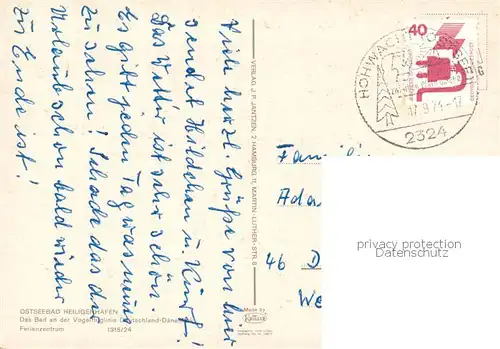 Viele herzl. Grüße von hier
sendet Hildchen u. Kurt!
Das Wetter ist sehr schön.
Es gibt jeden Tag was neues
zu sehen! Schade das der
Urlaub schon bald wieder
zu Ende ist!
OSTSEEBAD HEILIGENHAFEN
Das Bad an der Vogelfluglinie Deutschland-Dänemark
Ferienzentrum 1315/24
VERLAG J. P. JANTZEN, 2 HAMBURG 11, MARTIN-LUTHER-STR. 8
Made by
Krüger
40
17.9.74-17
2324
Famili
Ada
46 D
We
privacy protection
Datenschutz